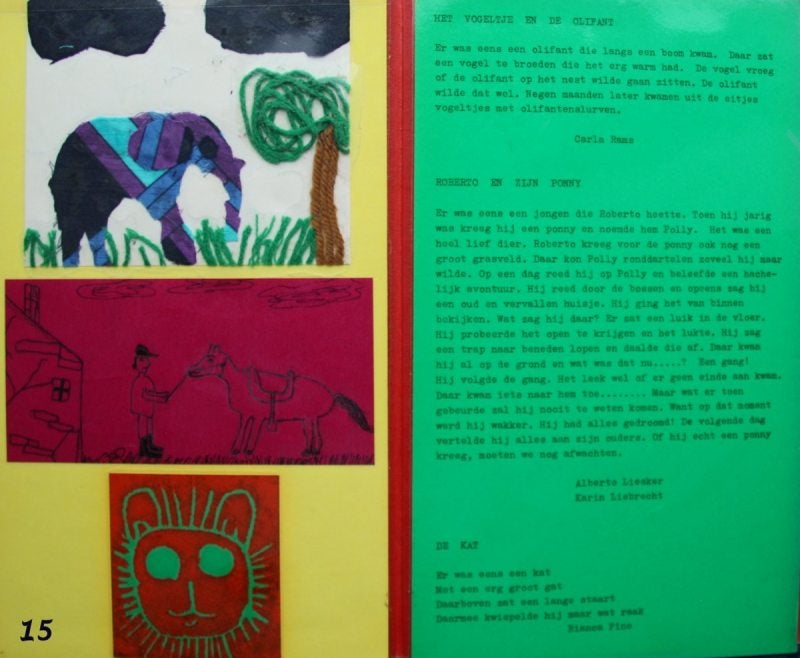 HET VOGELTJE EN DE OLIFANT
Er was eens een olifant die langs een boom kwam. Daar zat
een vogel te broeden die het erg warm had. De vogel vroeg
of de olifant op het nest wilde gaan zitten. De olifant
wilde dat wel. Negen maanden later kwamen uit de eitjes
vogeltjes met olifantenslurven.
Carla Rams
ROBERTO EN ZIJN PONNY
Er was eens een jongen die Roberto heette. Toen hij jarig
was kreeg hij een ponny en noemde hem Polly. Het was een
heel lief dier. Roberto kreeg voor de ponny ook nog een
groot grasveld. Daar kon Polly ronddartelen zoveel hij maar
wilde. Op een dag reed hij op Polly en beleefde een hache-
lijk avontuur. Hij reed door de bossen en opeens zag hij
een oud en vervallen huisje. Hij ging het van binnen
bekijken. Wat zag hij daar? Er zat een luik in de vloer.
Hij probeerde het open te krijgen en het lukte. Hij zag
een trap naar beneden lopen en daalde die af. Daar kwam
hij al op de grond en wat was dat nu.....? Een gang!
Hij volgde de gang. Het leek wel of er geen einde aan kwam.
Daar kwan iets naar hem toe........ Maar wat er toen
gebeurde zal hij nooit te weten komen. Want op dat moment
werd hij wakker. Hij had alles gedroomd! De volgende dag
vertelde hij alles aan zijn ouders. Of hij echt een ponny
kreeg, moeten we nog afwachten.
Alberto
Karin Liebrecht
DE KAT
Er was eens een kat
Met een erg groot gat
Daarboven zat een lange staart
Daarmee kwispelde hij maar wat raak
Bianca Pino
15